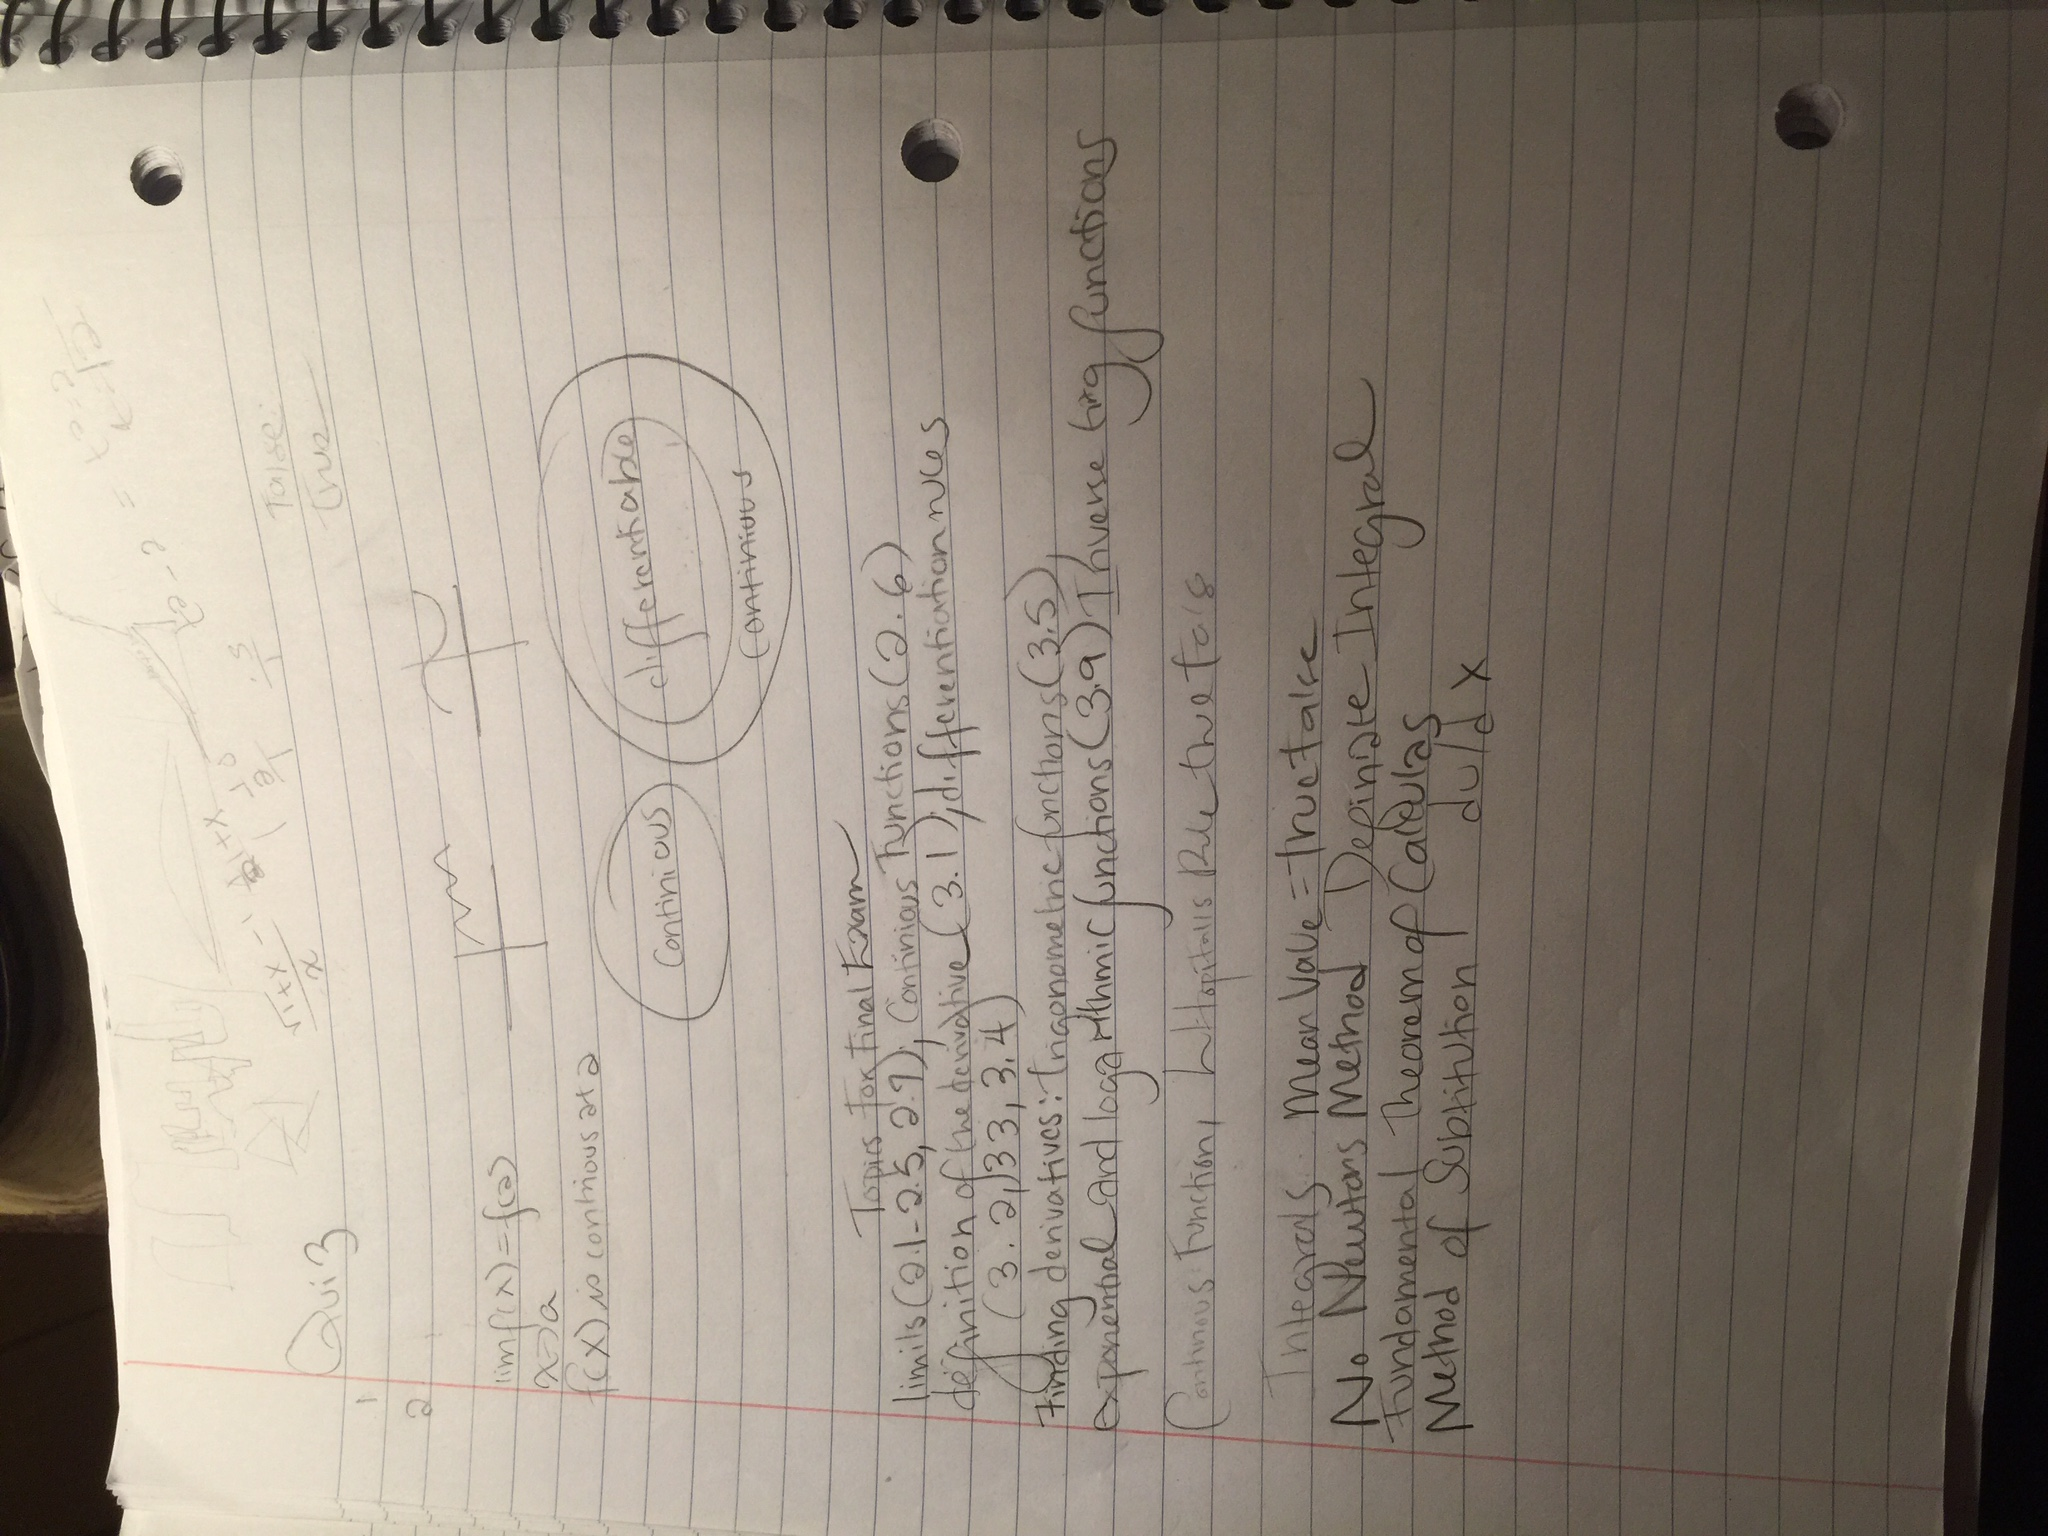 False:
true
Quiz
1
2
√1+x - 1+x
x
lim f(x) = f(a)
x→a
f(x) is continious at a
Continious
differentiable
continious
Topics for Final Exam
limits (2.1-2.5, 2.7), Continious Functions (2.6)
definition of the derivative (3.1), differentiation rules
(3.2, 33, 3.4)
Finding derivatives: trigonometric functions (3.5)
exponential and logarithmic functions (3.9) Inverse trig functions
Continous Function, L Hopitalls Rule true fals
Integrals. Mean Value = true talse
No Newtons Method Definate Integral
Fundamental Theorem of Calculas
Method of Subtitution du/dx